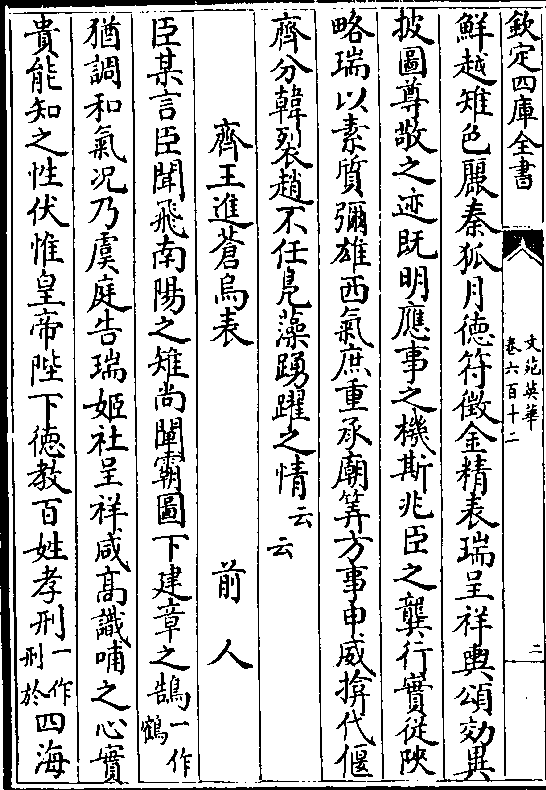 欽定四庫全書
文苑英華
卷六百十二
二
鮮越雉色麗秦狐月徳符徵金精表瑞呈祥輿頌効異
披圖尊敬之迹既明應事之機斯兆臣之龔行實從陜
略瑞以素質彌雄西氣庶重承廟筭方事申威揜代偃
齊分韓裂趙不任鳬藻踴躍之情云云
齊王進蒼烏表 前人
臣某言臣聞飛南陽之雉尚闡霸圖下建章之鵠一作鶴
猶調和氣况乃虞庭告瑞姬社呈祥咸髙識哺之心實
貴能知之性伏惟皇帝陛下徳教百姓孝刑一作刑於四海